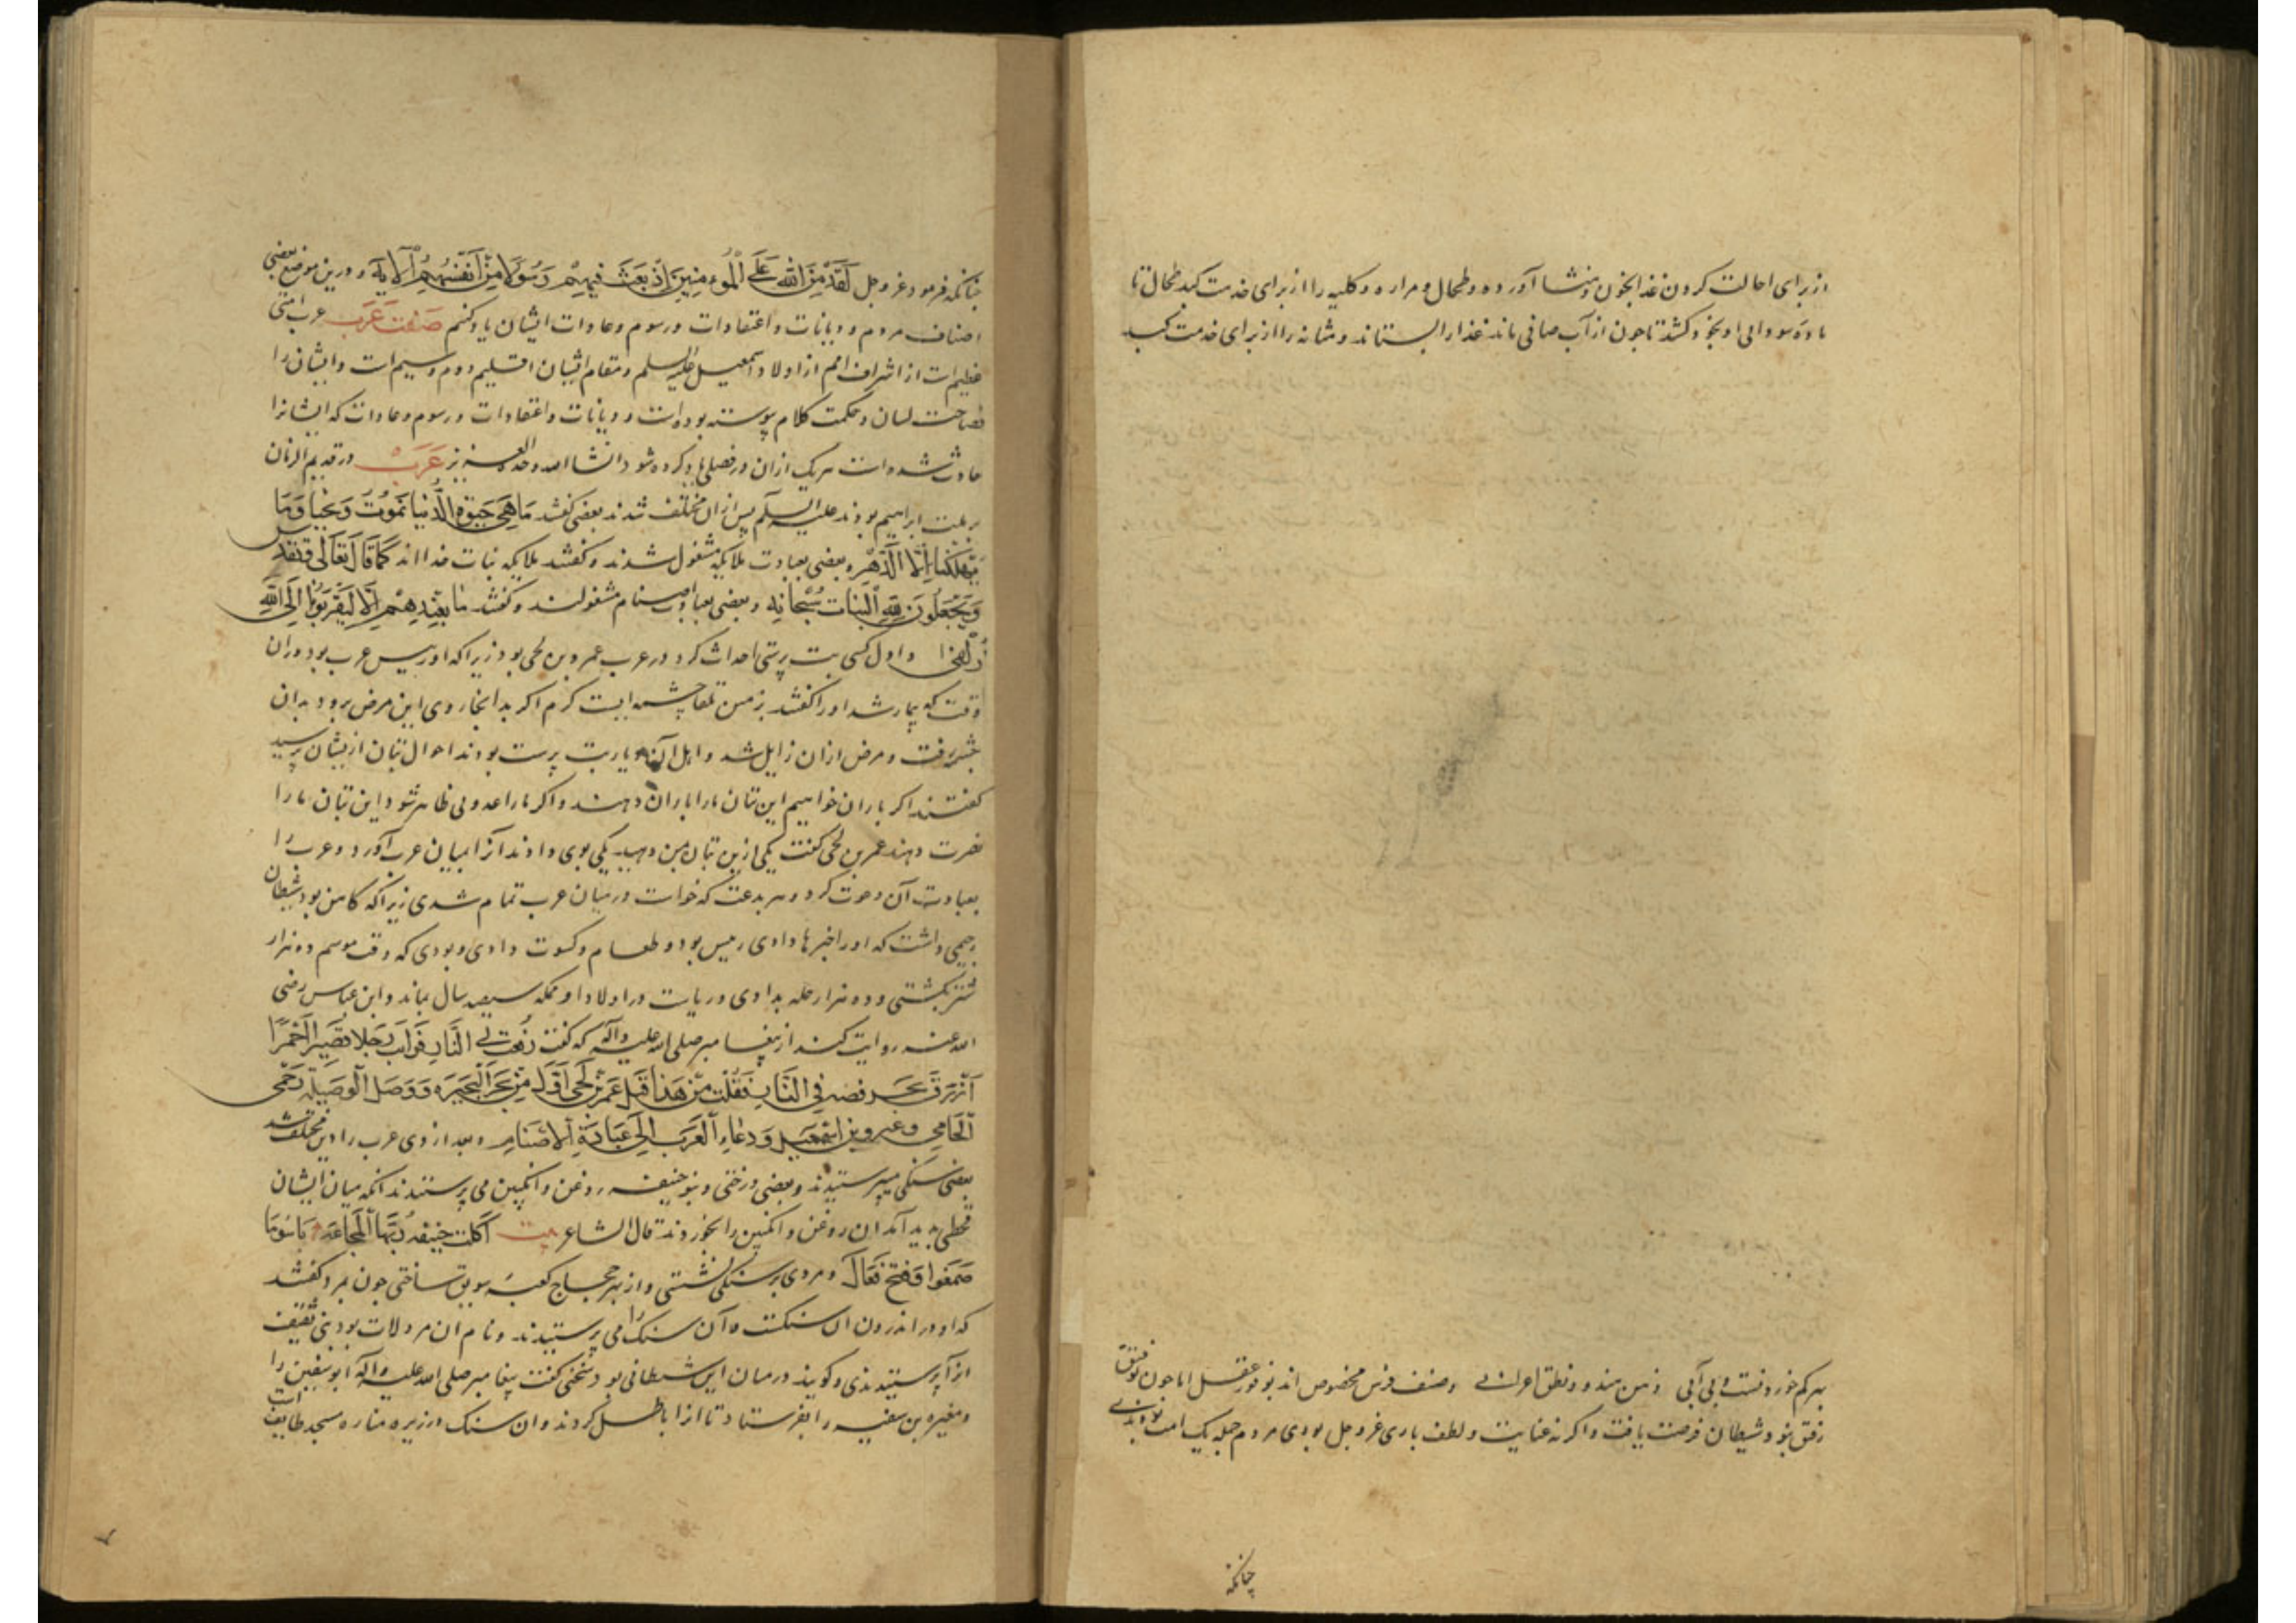 از برای احالت کردن غذا بخون و منشا آورده و طحال و مراره و کلیه را از برای خدمت کبد طحال تا
ماده سودایی او بخود کشد تا چون از آب صافی ماند غذا را بستاند و مثانه را از برای خدمت کبد
بهر کم خورد نیست و بی آبی ذهن هند و نطق اعرابی وصنف فرس مخصوص اند بوفور عقل اما چون توفیق
رفیق نبود شیطان فرصت یافت و اگر نه عنایت و لطف باری عز و جل بودی مردم جمله یک امت بودندی
چنانکه
چنانکه فرمود عز و جل لَقَدْ مَنَّ اللهُ عَلَی الْمُؤمِنِینَ إذْ بَعَثَ فِیهِمْ رَسُولًا مِنْ أَنْفُسِهِمْ الآیه و درین موضع بعضی
اصناف مردم و دیانات و اعتقادات و رسوم و عادات ایشان یاد کنیم صفت عرب عرب امتی
عظیم است از اشراف امم از اولاد اسمعیل علیه السلم و مقام ایشان اقلیم دوم و سیم است و ایشان را
فصاحت لسان و حکمت کلام پیوسته بوده است و دیانات و اعتقادات و رسوم و عادات که ایشانرا
حادث شده است هر یک ازان در فصلی یاد کرده شود انشا الله وحده العزیز عرب در قدیم الزمان
بر ملت ابراهیم بودند علیه السلم پس ازان مختلف شدند بعضی گفتند مَا هِیَ حَیوة الدُّنیا نَمُوتُ وَنَحْیَا وَمَا
یُهْلِکُنَا إِلَّا الدَّهْر و بعضی بعبادت ملایکه مشغول شدند و گفتند ملایکه بنات خدا اند کَمَا قَالَ تَعَالی وتقدس
وَیَجْعَلُونَ لِلّهِ الْبَنَاتِ سُبْحَانَه و بعضی بعبادت اصنام مشغولند و گفتند ما نعبدهم إلّا لیقربونا إلی الله
زلفی و اول کسی بت پرستی احداث کرد در عرب عمرو بن لحی بود زیرا که او رییس عرب بود دران
وقت که بیمار شد او را گفتند بزمین بلقا چشمه ایست گرم اگر بدانجا روی این مرض برود بدان
چشمه رفت و مرض ازان زایل شد و اهل آن دیار بت پرست بودند احوال بتان ازیشان پرسید
گفتند اگر باران خواهیم این بتان ما را باران دهند و اگر ما را عدوی ظاهر شود این بتان ما را
نصرت دهند عمر بن لحی گفت یکی ازین بتان بمن دهید یکی بوی دادند آنرا بمیان عرب آورد و عرب را
بعبادت آن دعوت کرد و هر بدعت که خواست در میان عرب تمام شدی زیرا که کاهن بود شیطان
رجیمی داشت که او را خبرها دادی رییس بود و طعام و کسوت دادی و بودی که وقت موسم ده هزار
شتر بکشتی و ده هزار حله بدادی و ریاست در اولاد او بمکه سیصد سال بماند و ابن عباس رضی
الله عنه روایت کند از پیغامبر صلی الله علیه و آله که گفت رفعت لی النار فرأیت رجلا قصیرا احمرا
ازرق یجر قصبه فی النار فقلت من هذا قیل عمر بن لحی اول من بحر البحیره ووصل الوصیلة وحمی
الحامی وغیر دین اسمعیل ودعا العرب إلی عبادة الاصنام و بعد از وی عرب را دین مختلف شد
بعضی سنکی میپرستیدند و بعضی درختی و بنو حنیفه روغن و انکبین می پرستیدند انکه میان ایشان
قحطی پدید آمد ان روغن و انکبین را بخوردند قال الشاعر بیت اکلت حنیفه ربها المجاعه
و مردی بر سنکی نشستی و از بهر حجاج کعبه سویق ساختی چون بمرد گفتند
که او در اندرون ان سنکست و آن سنک را می پرستیدند و نام ان مرد لات بود بنی ثقیف
انرا پرستیدندی و کویند در میان این شیطانی بود سخن گفت پیغامبر صلی الله علیه و آله ابو سفین را
و مغیره بن را بفرستاد تا انرا باطل کردند و ان سنک در زیر مناره مسجد طایف است